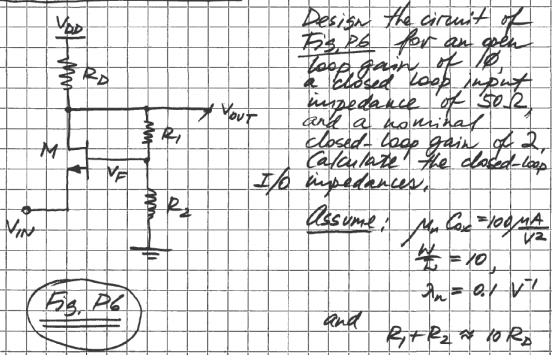 VDD
RD
VOUT
R1
M
VF
R2
VIN
Fig. P6
Design the circuit of
Fig. P6 for an open
loop gain of 10,
a closed loop input
impedance of 50Ω,
and a nominal
closed-loop gain of 2.
Calculate the closed-loop
I/O impedances.
Assume: μn Cox = 100 μA/V²
W/L = 10,
λn = 0.1 V⁻¹
and
R1 + R2 ≈ 10 RD